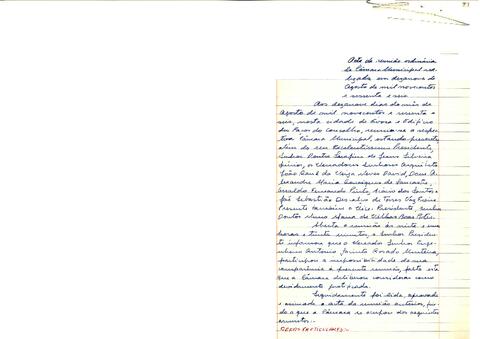 Acta da reunião ordinária
da Câmara Municipal rea-
lizada em dezanove de
Agosto de mil novecentos
e sessenta e seis
Aos dezanove dias do mês de
Agosto de mil novecentos e sessenta e
seis, nesta cidade de Évora e Edifício
dos Paços do Concelho, reuniu-se a respec-
tiva Câmara Municipal, estando presente,
além do seu Excelentíssimo Presidente,
Senhor Doutor Serafim de Jesus Silveira
Júnior, os Vereadores Senhores Arquitecto
João Raul da David, Dom A-
lexandre Maria de Lancastre,
Arnaldo Fernando Santos e
José Sebastião de Torres Vaz Freire.
Presente também o Vice-Presidente, Senhor
Doutor Maria de Vilhena
Aberta a reunião às vinte e uma
horas e trinta minutos, o Senhor Presiden-
te informou que o Vereador Senhor Enge-
nheiro António
participou a impossibilidade da sua
comparência à presente reunião, falta esta
que a Câmara deliberou considerar como
devidamente justificada.
Seguidamente foi lida, aprovada
e assinada a acta da reunião anterior,
o que a Câmara se ocupou dos seguintes
assuntos:-
OBRAS PARTICULARES:-